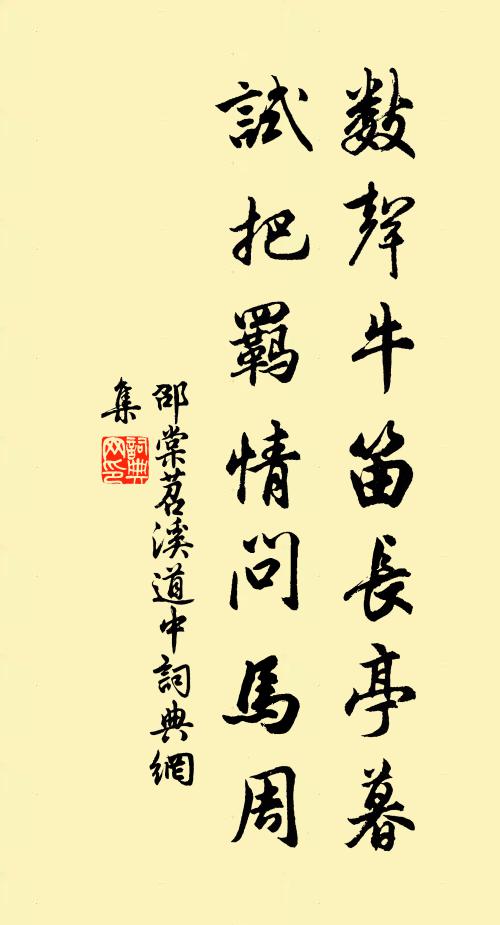 數聲牛笛長亭暮
試把羈情問馬周
邵棠苕溪道中詞典網
集
詞典
网印